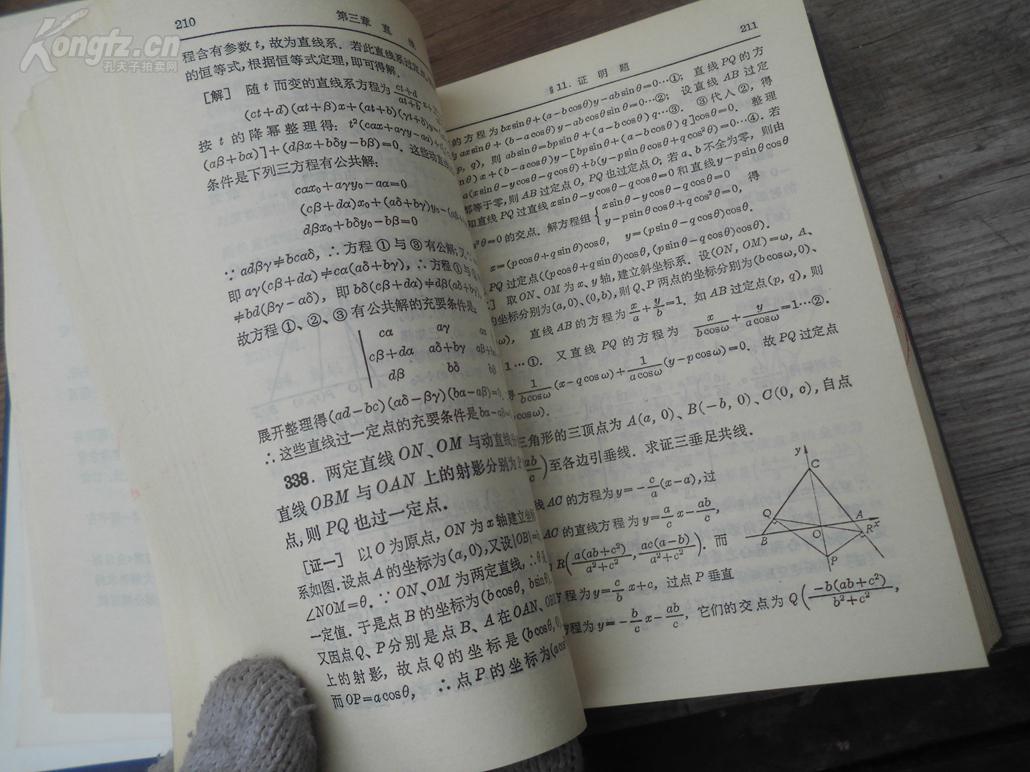 Kongfz.com
孔夫子拍卖网
210
第三章 直
程含有参数 t, 故为直线系. 若此直线系过定点
的恒等式, 根据恒等式定理, 即可得解.
[解] 随 t 而变的直线系方程为 ct+d
(ct+d)(αt+β)x+(at+b)(γt+δ)y
按 t 的降幂整理得: t²(cαx+aγy-aα)+
(aβ+bα)]+(dβx+bδy-bβ)=0. 这些动直
条件是下列三方程有公共解:
cαx₀+aγy₀-aα=0
(cβ+dα)x₀+(aδ+bγ)y₀-
dβx₀+bδy₀-bβ=0
∵ adβγ≠bcαδ, ∴ 方程 ① 与 ③ 有公解;
即 aγ(cβ+dα)≠cα(aδ+bγ), ∴ 方程 ① 与
≠bd(βγ-αδ), 即 bδ(cβ+dα)≠dβ(aδ+bγ),
故方程 ①、②、③ 有公共解的充要条件是
cα aγ aα
cβ+dα aδ+bγ aβ+
dβ bδ bβ
展开整理得(ad-bc)(αδ-βγ)(bα-aβ)=0.
∴ 这些直线过一定点的充要条件是 bα-aβ
338. 两定直线 ON、OM 与动直线
直线 OBM 与 OAN 上的射影分别为
点, 则 PQ 也过一定点.
[证一] 以 O 为原点, ON 为 x 轴建立
系如图. 设点 A 的坐标为(a,0), 又设|OB|=
∠NOM=θ. ∵ ON、OM 为两定直线, ∴ θ
一定值. 于是点 B 的坐标为(bcosθ, bsinθ).
又因点 Q、P 分别是点 B、A 在 OAN、OBM
上的射影, 故点 Q 的坐标是(bcosθ, 0),
而 OP=acosθ, ∴ 点 P 的坐标为(acos
§11. 证明题
211
的方程为 bxsinθ+(a-bcosθ)y-absinθ=0…①; 直线 PQ 的方
axsinθ+(b-acosθ)y-abcosθsinθ=0…②; 设直线 AB 过定
p, q), 则 absinθ=bpsinθ+(a-bcosθ)q…③. ③代入②, 得
sinθ)x+(b-acosθ)y-[bpsinθ+(a-bcosθ)q]cosθ=0. 整理
a(xsinθ-ycosθ-qcosθ)+b(y-psinθcosθ+qcos²θ)=0…④. 若
都等于零, 则 AB 过定点 O, PQ 也过定点 O; 若 a、b 不全为零, 则由
知直线 PQ 过直线 xsinθ-ycosθ-qcosθ=0 和直线 y-psinθcosθ
²θ=0 的交点. 解方程组 { xsinθ-ycosθ-qcosθ=0
y-psinθcosθ+qcos²θ=0, 得
x=(pcosθ+qsinθ)cosθ, y=(psinθ-qcosθ)cosθ.
PQ 过定点((pcosθ+qsinθ)cosθ, (psinθ-qcosθ)cosθ).
取 ON、OM 为 x、y 轴, 建立斜坐标系. 设(ON, OM)=ω, A、
的坐标分别为(a, 0)、(0, b), 则 Q、P 两点的坐标分别为(bcosω, 0)、
ω), 直线 AB 的方程为 x/a+y/b=1. 如 AB 过定点(p, q), 则
1…①. 又直线 PQ 的方程为 x/bcosω+y/acosω=1…②.
1/bcosω(x-qcosω)+1/acosω(y-pcosω)=0. 故 PQ 过定点
cosω).
三角形的三顶点为 A(a, 0)、B(-b, 0)、C(0, c), 自点
ab/c) 至各边引垂线. 求证三垂足共线.
线 AC 的方程为 y=-c/a(x-a), 过
AC 的直线方程为 y=a/c x-ab/c,
R(a(ab+c²)/a²+c², ac(a-b)/a²+c²). 而
程为 y=c/b x+c, 过点 P 垂直
程为 y=-b/c x-ab/c, 它们的交点为 Q(-b(ab+c²)/b²+c²,
y
C
Q
A
B
O
R
x
P